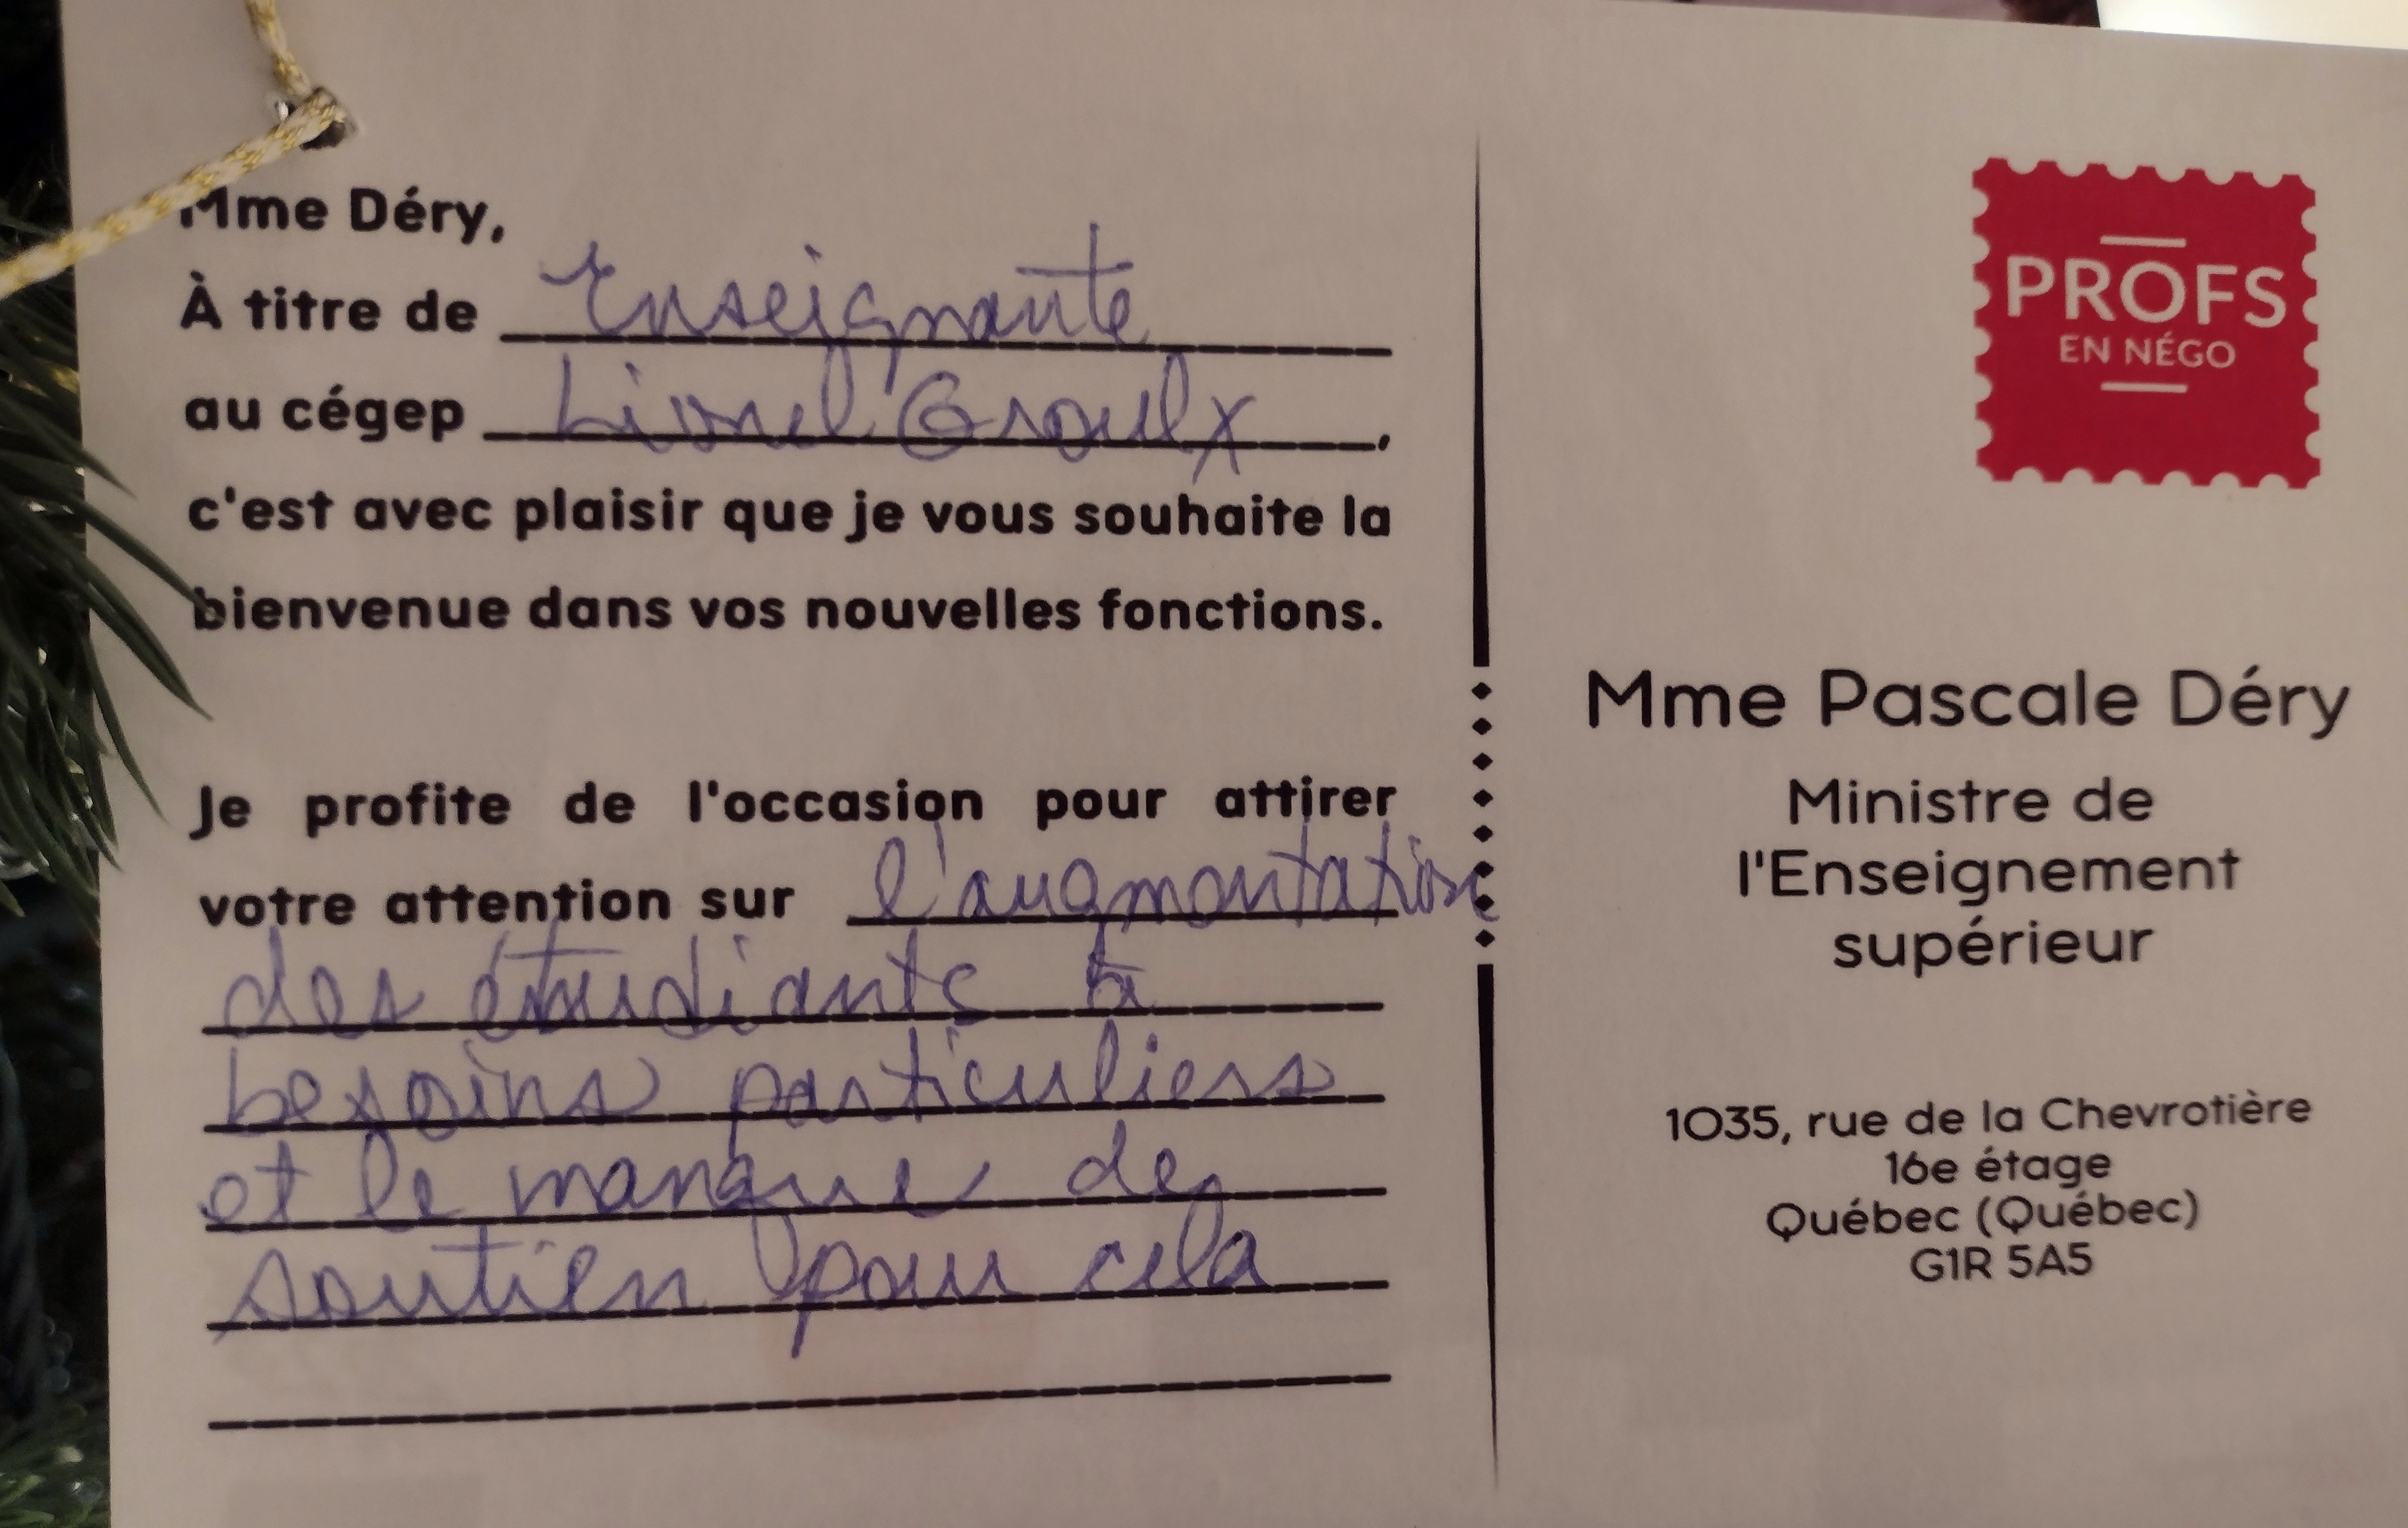 Mme Déry,
À titre de Enseignante
au cégep Lionel Groulx,
c'est avec plaisir que je vous souhaite la
bienvenue dans vos nouvelles fonctions.
Je profite de l'occasion pour attirer
votre attention sur l'augmentation
des étudiants à
besoins particuliers
et le manque de
soutien pour cela
PROFS
EN NÉGO
Mme Pascale Déry
Ministre de
l'Enseignement
supérieur
1035, rue de la Chevrotière
16e étage
Québec (Québec)
G1R 5A5